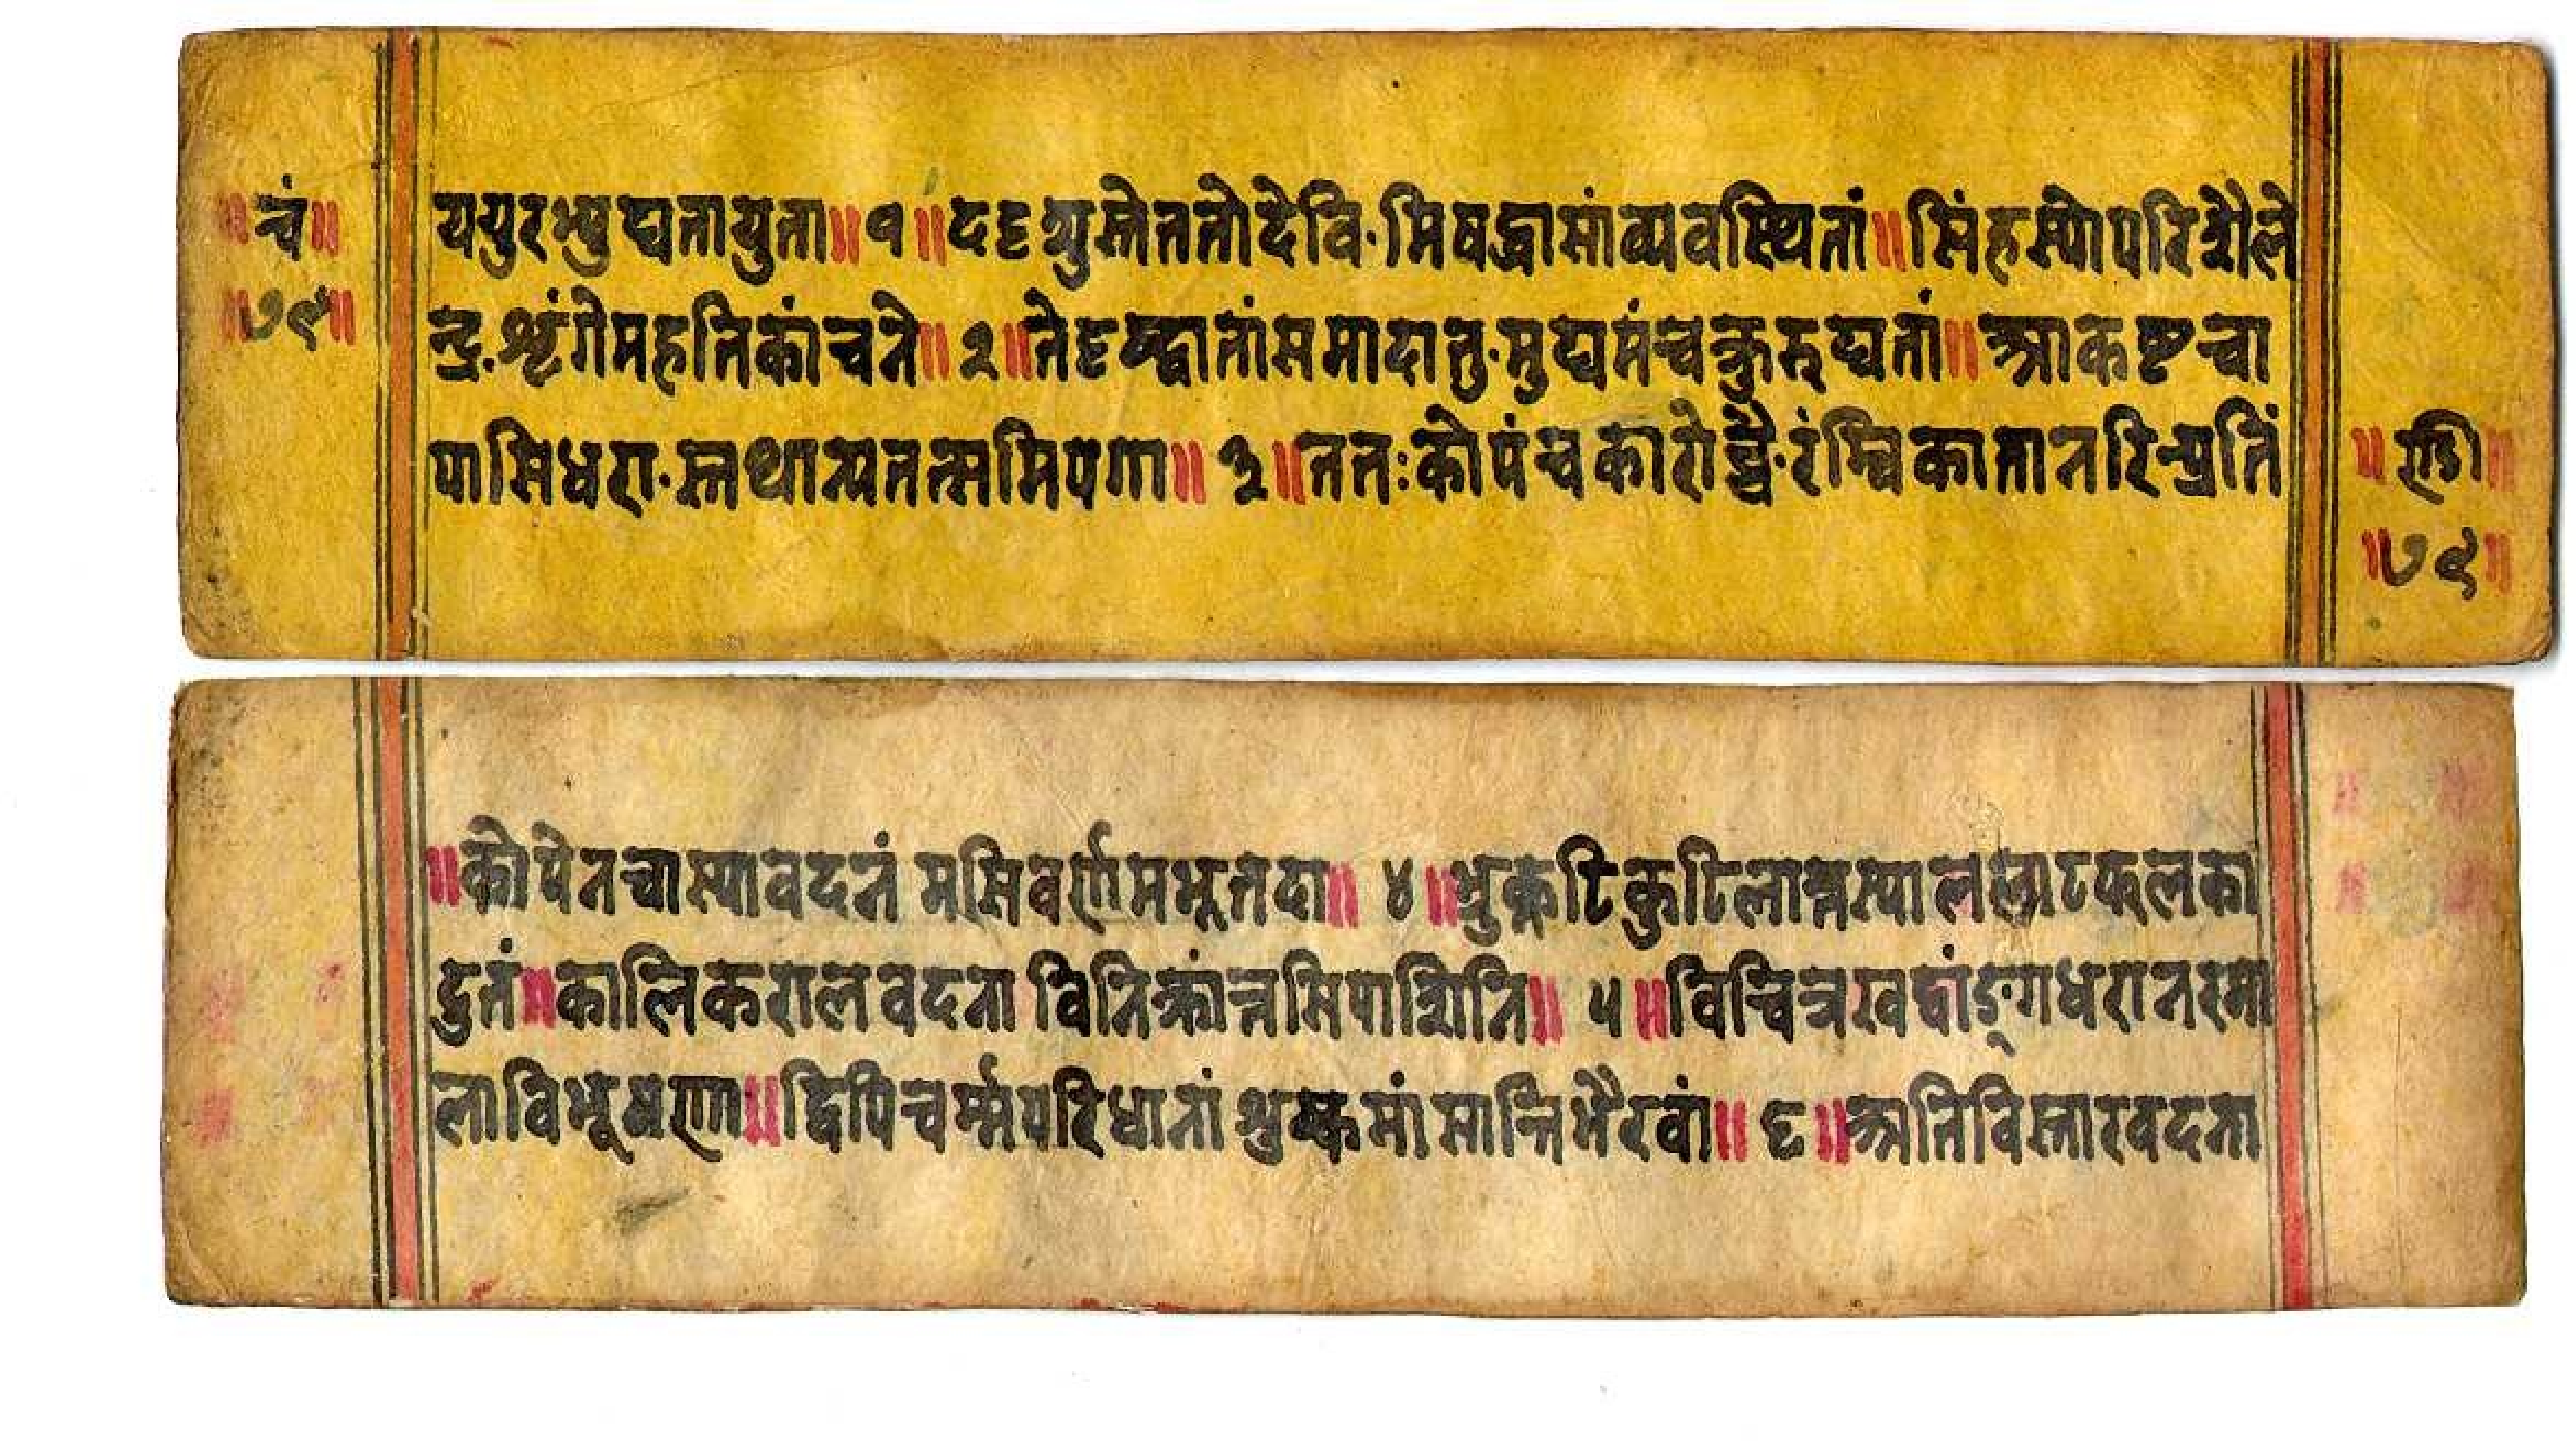 ॥चं॥
॥७९॥
ययुरभ्युद्यतायुता॥१॥ददृश्युस्तेततोदेवि·मिषद्धासांव्यवस्थितां॥सिंहस्योपरिशैले
न्द्र·शृंगेमहतिकांचने॥२॥तेदृष्ट्वातांसमादातु·मुद्यमंचक्रुरुद्यतां॥आकष्टचा
पासिधरा·स्तथान्यतत्समिपगा॥३॥ततःकोपंचकारोच्चै·रंम्बिकातानरिन्प्रतिं
॥ण्डी॥
॥७९॥
॥कोपेनचास्यावदनं मसिवर्ण्णमभूत्तदा॥४॥भ्रुकुटिकुटिलात्तस्यालल्लाटफलका
द्रुतं॥कालिकरालवदना विनिक्रांन्तसिपाशिनि॥५॥विचित्रखट्वांङ्गधरानरमा
लाविभूषणा॥द्विपिचर्म्मपरिधानां शुष्कमांसान्तिभैरवां॥६॥अतिविस्तारवदना